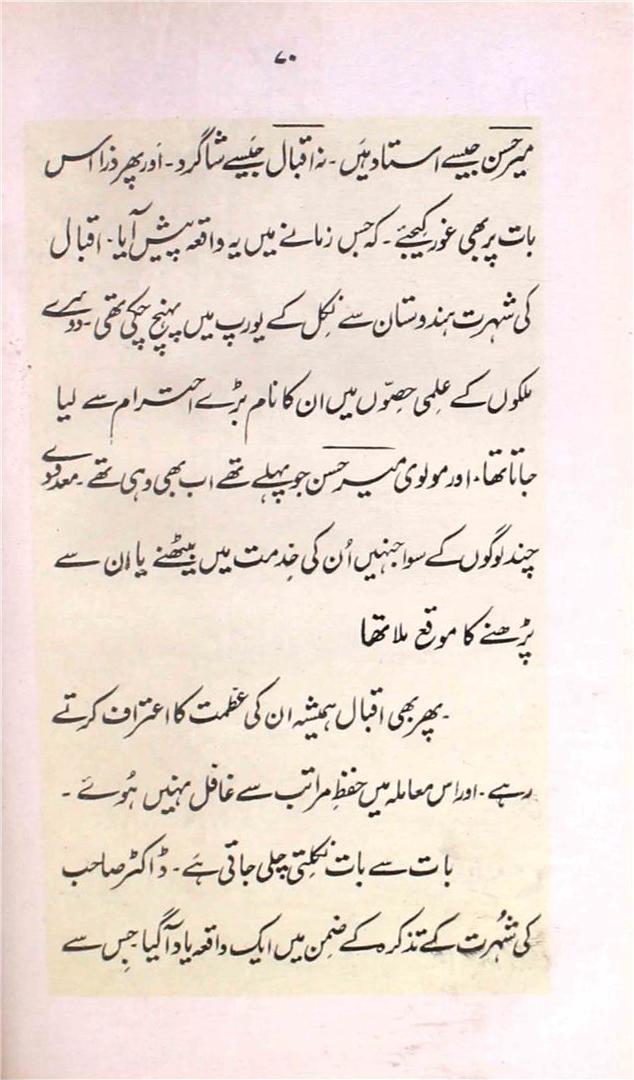 ۷۰
میر حسن جیسے استاد ہیں۔ نہ اقبال جیسے شاگرد۔ اور پھر ذرا اس
بات پر بھی غور کیجئے۔ کہ جس زمانے میں یہ واقعہ پیش آیا۔ اقبال
کی شہرت ہندوستان سے نکل کے یورپ میں پہنچ چکی تھی۔ دوسرے
ملکوں کے علمی حصّوں میں ان کا نام بڑے احترام سے لیا
جاتا تھا۔ اور مولوی میر حسن جو پہلے تھے اب بھی وہی تھے۔ معدودے
چند لوگوں کے سوا جنہیں اُن کی خدمت میں بیٹھنے یا ان سے
پڑھنے کا موقع ملا تھا
۔ پھر بھی اقبال ہمیشہ ان کی عظمت کا اعتراف کرتے
رہے۔ اور اس معاملہ میں حفظِ مراتب سے غافل نہیں ہُوئے۔
بات سے بات نکلتی چلی جاتی ہے۔ ڈاکٹر صاحب
کی شہُرت کے تذکرہ کے ضمن میں ایک واقعہ یاد آگیا جِس سے